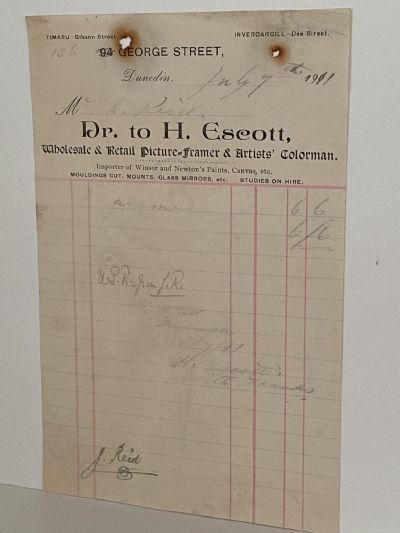 TIMARU—Gibson Street.
INVERCARGILL—Dee Street.
136 94 GEORGE STREET,
Dunedin, July 7th 1911
Mr Reid.
Dr. to H. Escott,
Wholesale & Retail Picture-Framer & Artists' Colorman.
Importer of Winsor and Newton's Paints, Canvas, etc.
MOULDINGS CUT, MOUNTS, GLASS MIRRORS, etc. STUDIES ON HIRE.
6 6
6/6
W.P.R. from J.R.
With Thanks
J. Reid